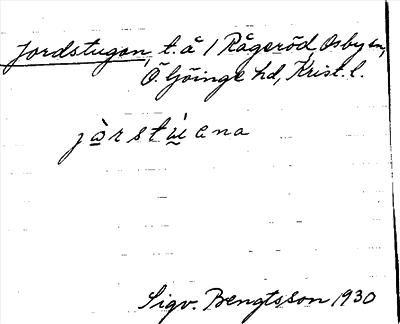 Jordstugan, t. å 1 Rågeröd, Osby sn,
Ö. Göinge hd, Krist. l.
jò̲rstù̲ena
Sigv. Bengtsson 1930